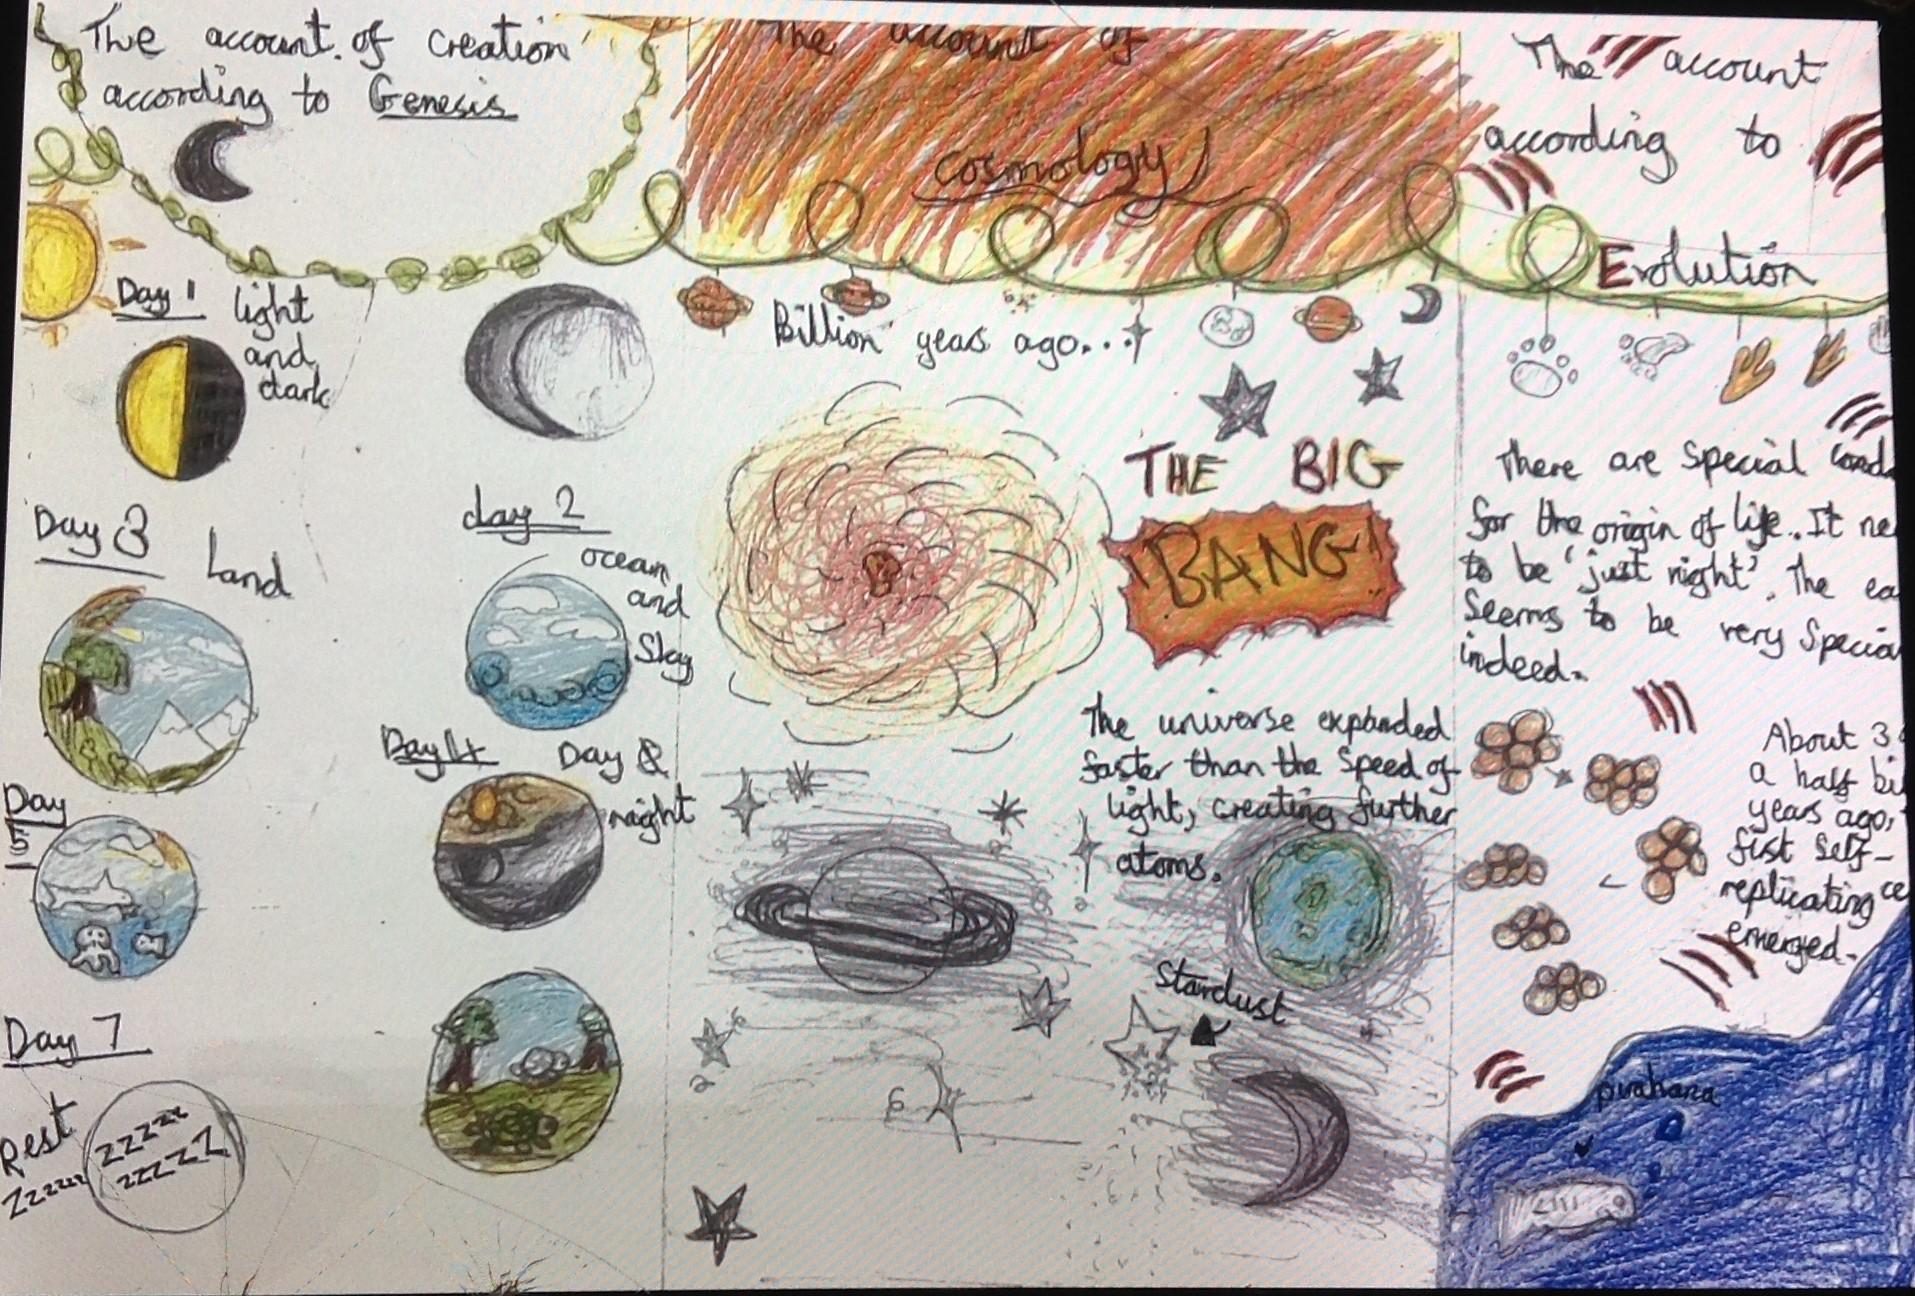 The account of creation
according to Genesis
Day 1
light
and
dark
day 2
ocean
and
Sky
Day 3
Land
Day 4
Day &
night
Day
5
Day 7
Rest
zzzzz
zzzzz
The account of
cosmology
Billion years ago...
THE BIG
BANG!
The universe expanded
faster than the Speed of
light, creating further
atoms.
Stardust
The account
according to
Evolution
there are Special
for the origin of life. It
to be 'just right'. The
Seems to be very
indeed.
About 3
a half
years ago,
first Self-
replicating
emerged.
pirahana